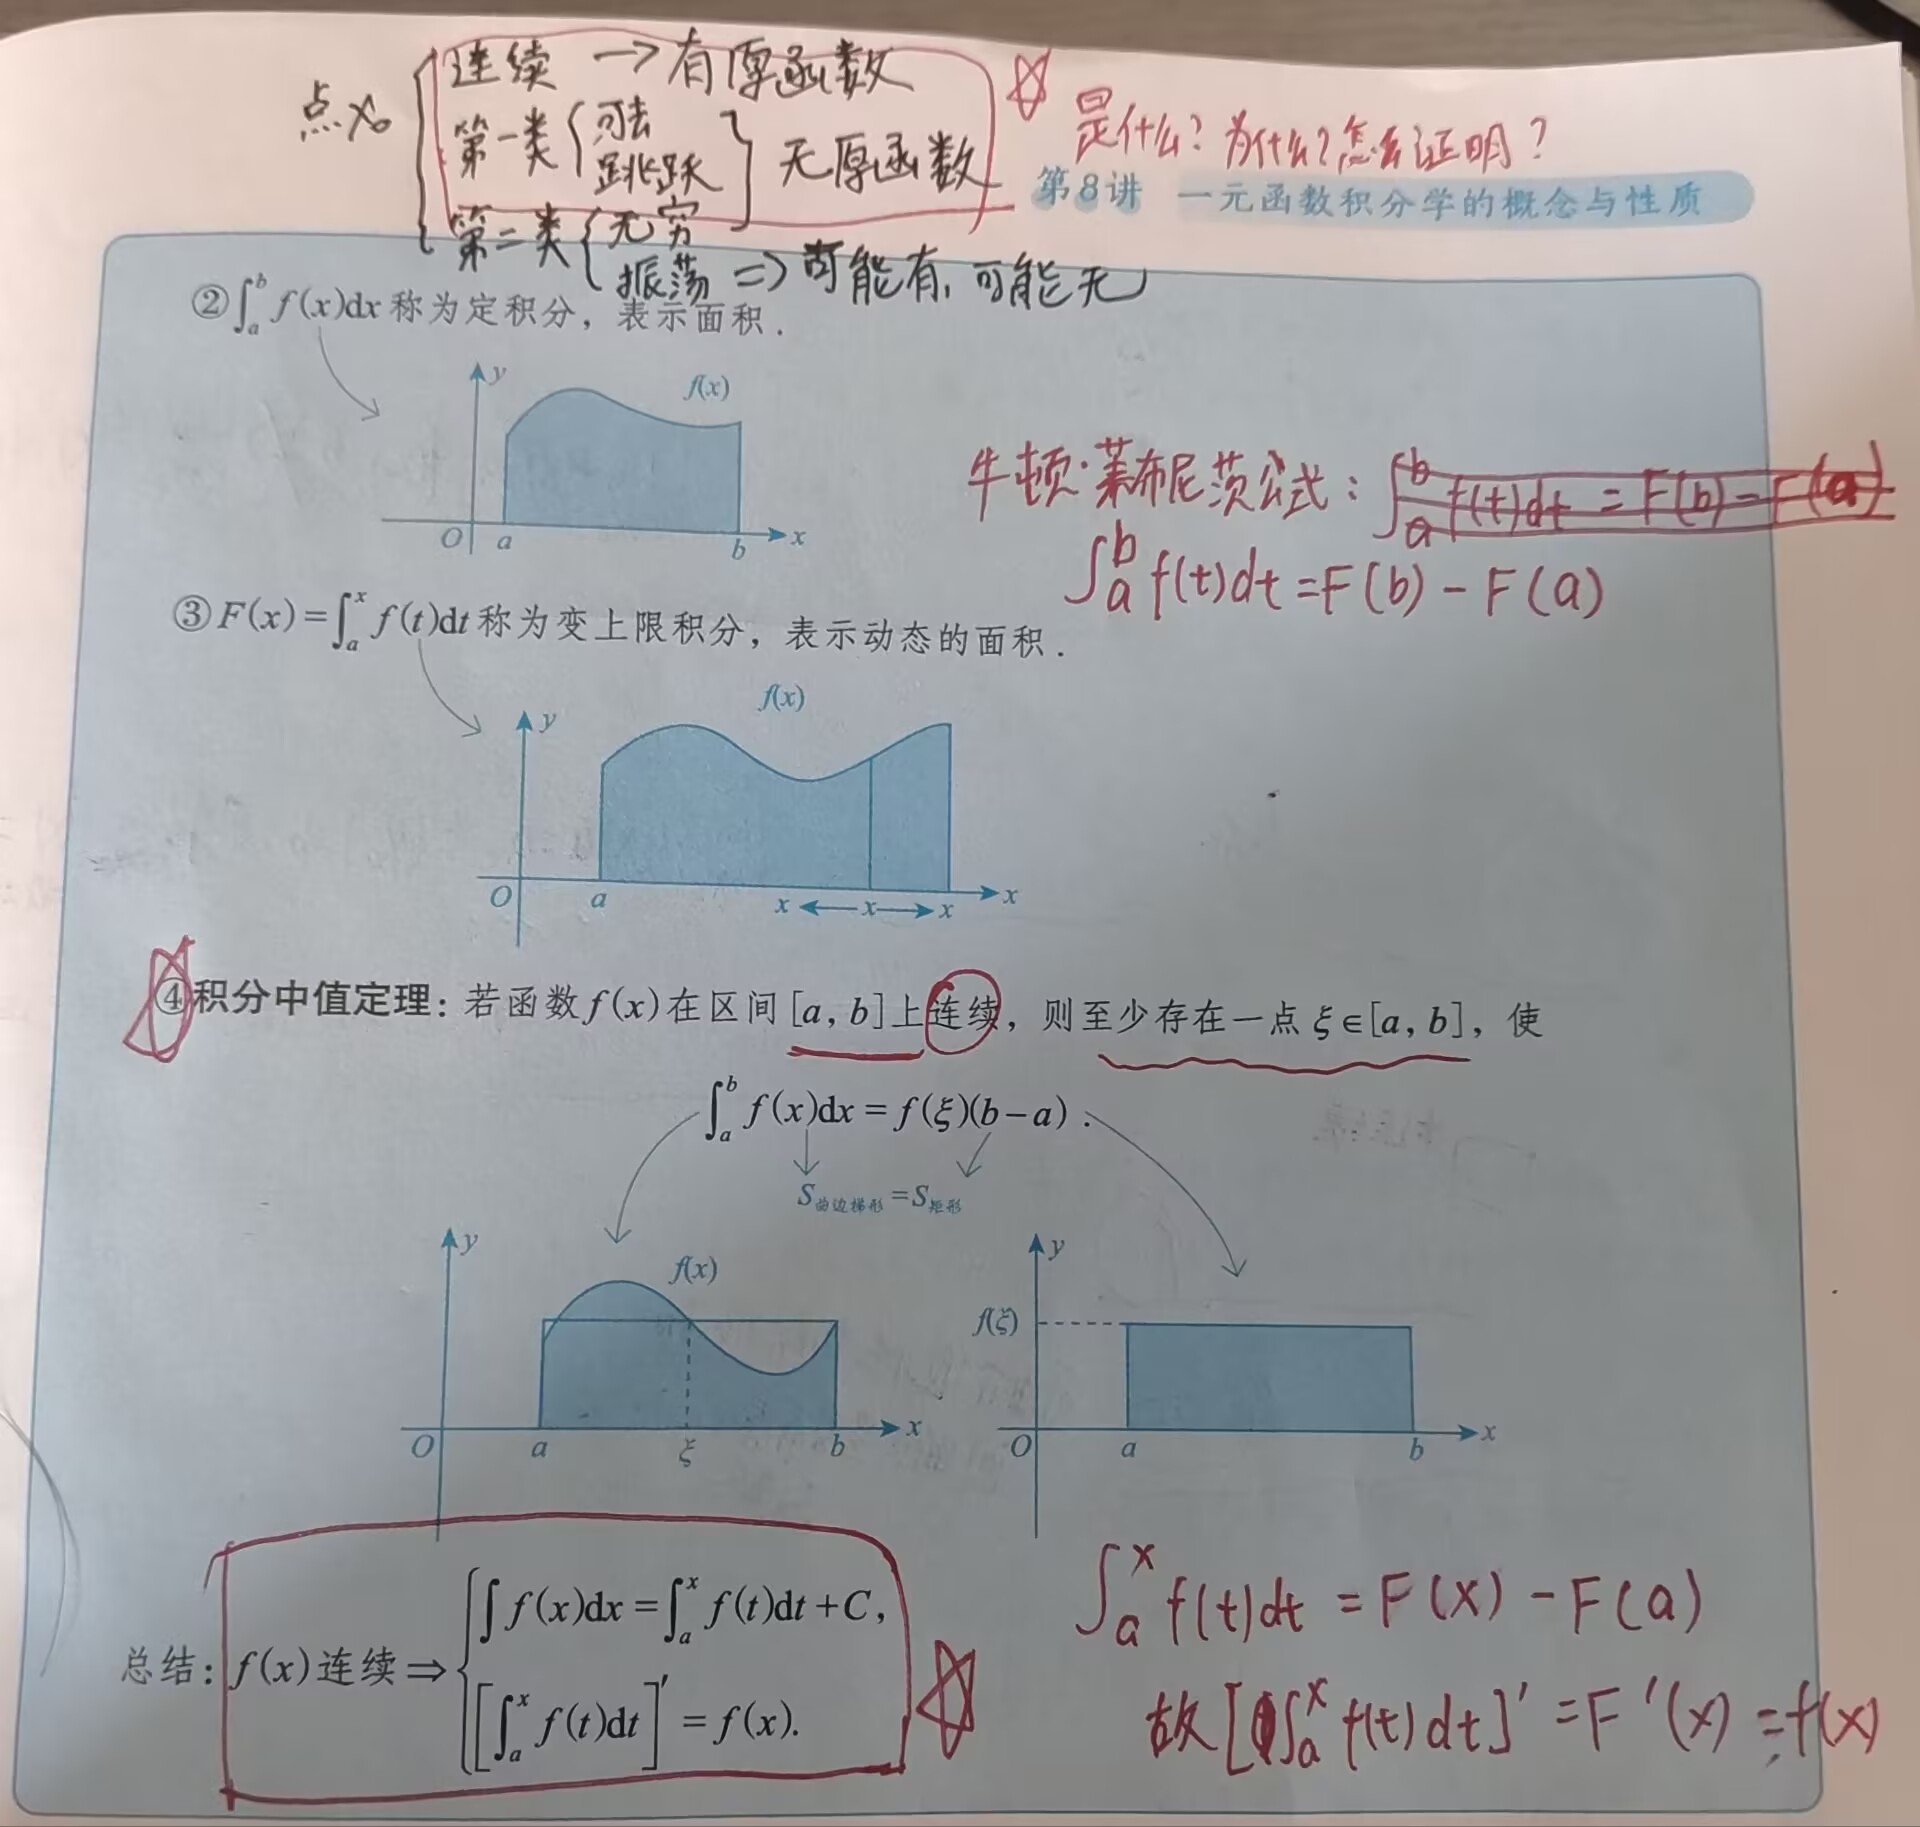 点x₀ { 连续 → 有原函数
第一类 { 可去 跳跃 } 无原函数
第二类 { 无穷
振荡 => 可能有, 可能无
是什么? 为什么? 怎么证明?
第8讲 一元函数积分学的概念与性质
②∫_a^b f(x)dx称为定积分，表示面积.
y
f(x)
O a b x
牛顿·莱布尼茨公式: ∫_a^b f(t)dt = F(b) - F(a)
∫_a^b f(t)dt = F(b) - F(a)
③F(x)=∫_a^x f(t)dt称为变上限积分，表示动态的面积.
f(x)
y
O a x x x x
④积分中值定理: 若函数f(x)在区间[a, b]上连续，则至少存在一点ξ∈[a, b]，使
∫_a^b f(x)dx = f(ξ)(b-a).
S曲边梯形=S矩形
y f(x)
O a ξ b x
y
f(ξ)
O a b x
总结: f(x)连续⇒ { ∫f(x)dx=∫_a^x f(t)dt+C,
[∫_a^x f(t)dt]′ = f(x).
∫_a^x f(t)dt = F(x) - F(a)
故[∫_a^x f(t)dt]′ = F′(x) = f(x)